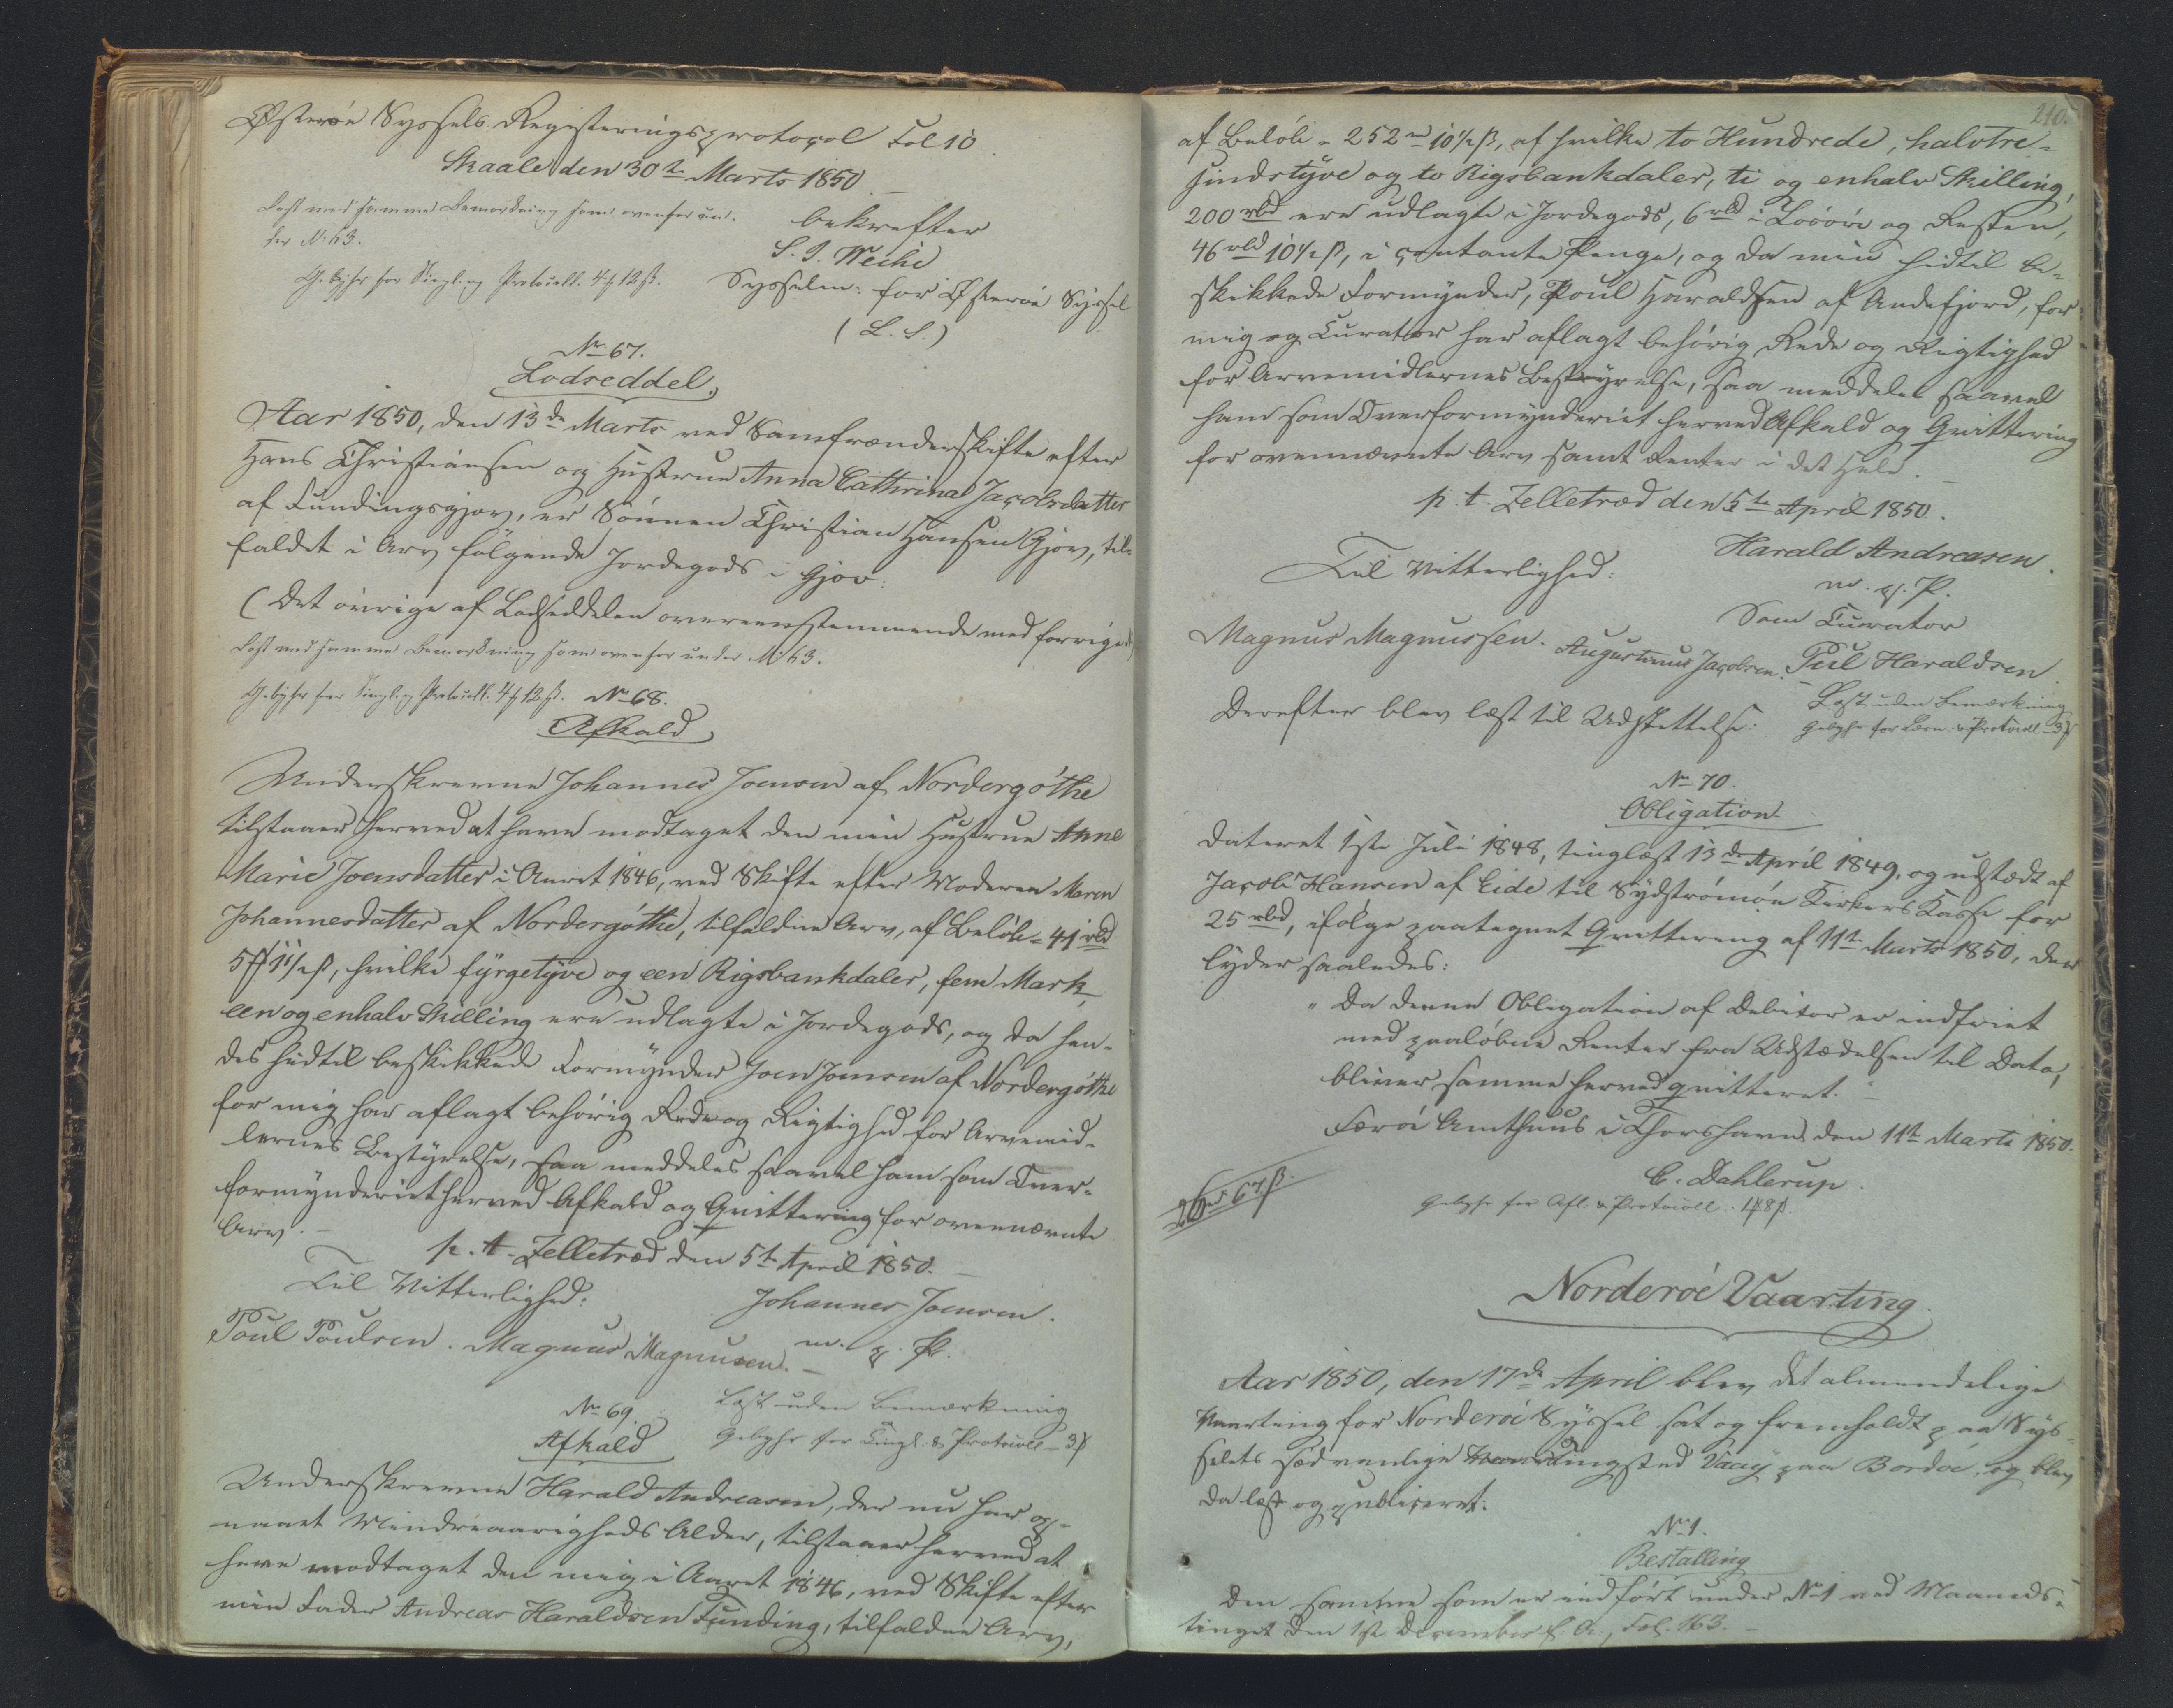 Østerøe Syssels Registeringsprotocol Fol 10
Skaale den 30te Marts 1850.
Læst med samme Bemærkning som ovenfor un-
der No 63.
bekræfter
S. J. Weihe
Gebyhr for Tingl. og Protocoll. 4 ƒ 12 ß.
Sysselm: for Østerøe Syssel
(L. S.)
No 67.
Lodseddel,
Aar 1850, den 13de Marts ved Samfrændeskifte efter
Hans Christiansen og Hustrue Anna Cathrina Jacobsdatter
af Fundingsgjov, er Sønnen Christian Hansen Gjov, til-
faldet i Arv følgende Jordegods i Gjov:
(Det øvrige af Lodseddelen overeenstemmende med forrige)
Læst med samme Bemærkning som ovenfor under No 63.
Gebyhr for Tingl. og Protocoll. 4 ƒ 12 ß. No 68.
Afkald
Underskrevne Johannes Joensen af Nordergøthe
tilstaaer herved at have modtaget den min Hustrue Anne
Marie Joensdatter i Aaret 1846, ved Skifte efter Moderen Maren
Johannesdatter af Nordergøthe, tilfaldne Arv, af Beløb = 41 rbd
5 ƒ 1 1/2 ß, hvilke fyrgetyve og een Rigsbankdaler, fem Mark
een og enhalv Skilling ere udlagte i Jordegods, og da hen-
des hidtil beskikkede Formynder Joen Joensen af Nordergøthe
for mig har aflagt behørig Rede og Rigtighed for Arvemid-
lernes Bestyrelse, saa meddeles saavel ham som Over-
formynderiet herved Afkald og Qvittering for ovennævnte
Arv. –
p. t. Zelletræd den 5te April 1850. –
Til Vitterlighed:
Johannes Joensen.
m. p. P.
Poul Poulsen. Magnus Magnusen. –
Læst uden Bemærkning
Gebyhr for Tingl. & Protocoll – 3 ƒ
No 69.
Afkald
Underskrevne Harald Andreasen, der nu har op-
naaet Mindreaarigheds Alder, tilstaaer herved at
have modtaget den mig i Aaret 1846, ved Skifte efter
min Fader Andreas Haraldsen Funding, tilfaldne Arv,
210.
af Beløb = 252 rd 10 1/2 ß, af hvilke to Hundrede, halvtre-
sindstyve og to Rigsbankdaler, ti og enhalv Skilling,
200 rbd ere udlagte i Jordegods, 6 rbd i Løsøre og Resten,
46 rbd 10 1/2 ß, i contante Penge, og da min hidtil be-
skikkede Formynder, Poul Haraldsen af Andefjord, for
mig og Curator har aflagt behørig Rede og Rigtighed
for Arvemidlernes Bestyrelse, saa meddeles saavel
ham som Overformynderiet herved Afkald og Qvittering
for ovennævnte Arv samt Renter i det Hele. –
p. t. Zelletræd den 5te April 1850.
Til Vitterlighed:
Harald Andreasen.
m. p. P.
Som Curator
Magnus Magnussen. Augustinus Jacobsen. Pul Haraldsen.
Læst uden Bemærkning
Gebyhr for Læsn. & Protocoll – 3 ƒ
Derefter blev læst til Udslettelse:
No 70.
Obligation
dateret 1ste Juli 1848, tinglæst 13de April 1849, og udstædt af
Jacob Hansen af Eide til Sydstrømøe Kirkers Kasse for
25 rbd, ifølge paategnet Qvittering af 11te Marts 1850, der
lyder saaledes:
"Da denne Obligation af Debitor er indfriet
med paaløbne Renter fra Udstædelsen til Dato,
bliver samme herved qvitteret." –
Færøe Amthuus i Thorshavn, den 11te Marts 1850.
C. Dahlerup.
Gebyhr for Afl. & Protocoll. 1 ƒ 8 ß.
26 rd 67 ß.
Norderøe Vaarting.
Aar 1850, den 17de April blev det almindelige
Vaarting for Norderøe Syssel sat og fremholdt paa Sys-
selets sædvanlige Tingsted Vaag paa Bordøe, og blev
da læst og publiceret:
No 1.
Bestalling
den samme som er indført under No 1 ved Maaneds-
tinget den 1ste December f. A., Fol. 163. –